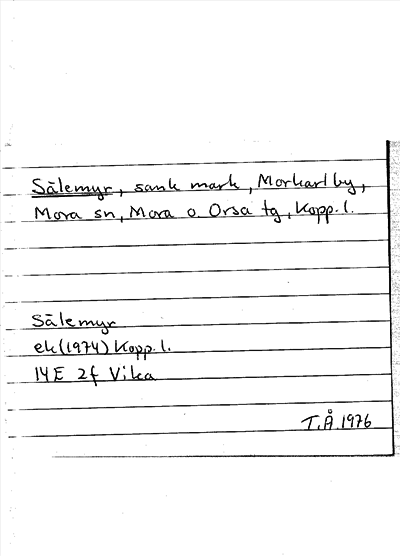 Sälemyr, sank mark, Morkarlby,
Mora sn, Mora o. Orsa tg, Kopp. l.
Sälemyr
ek (1974) Kopp. l.
14E 2f Vika
T.Å. 1976